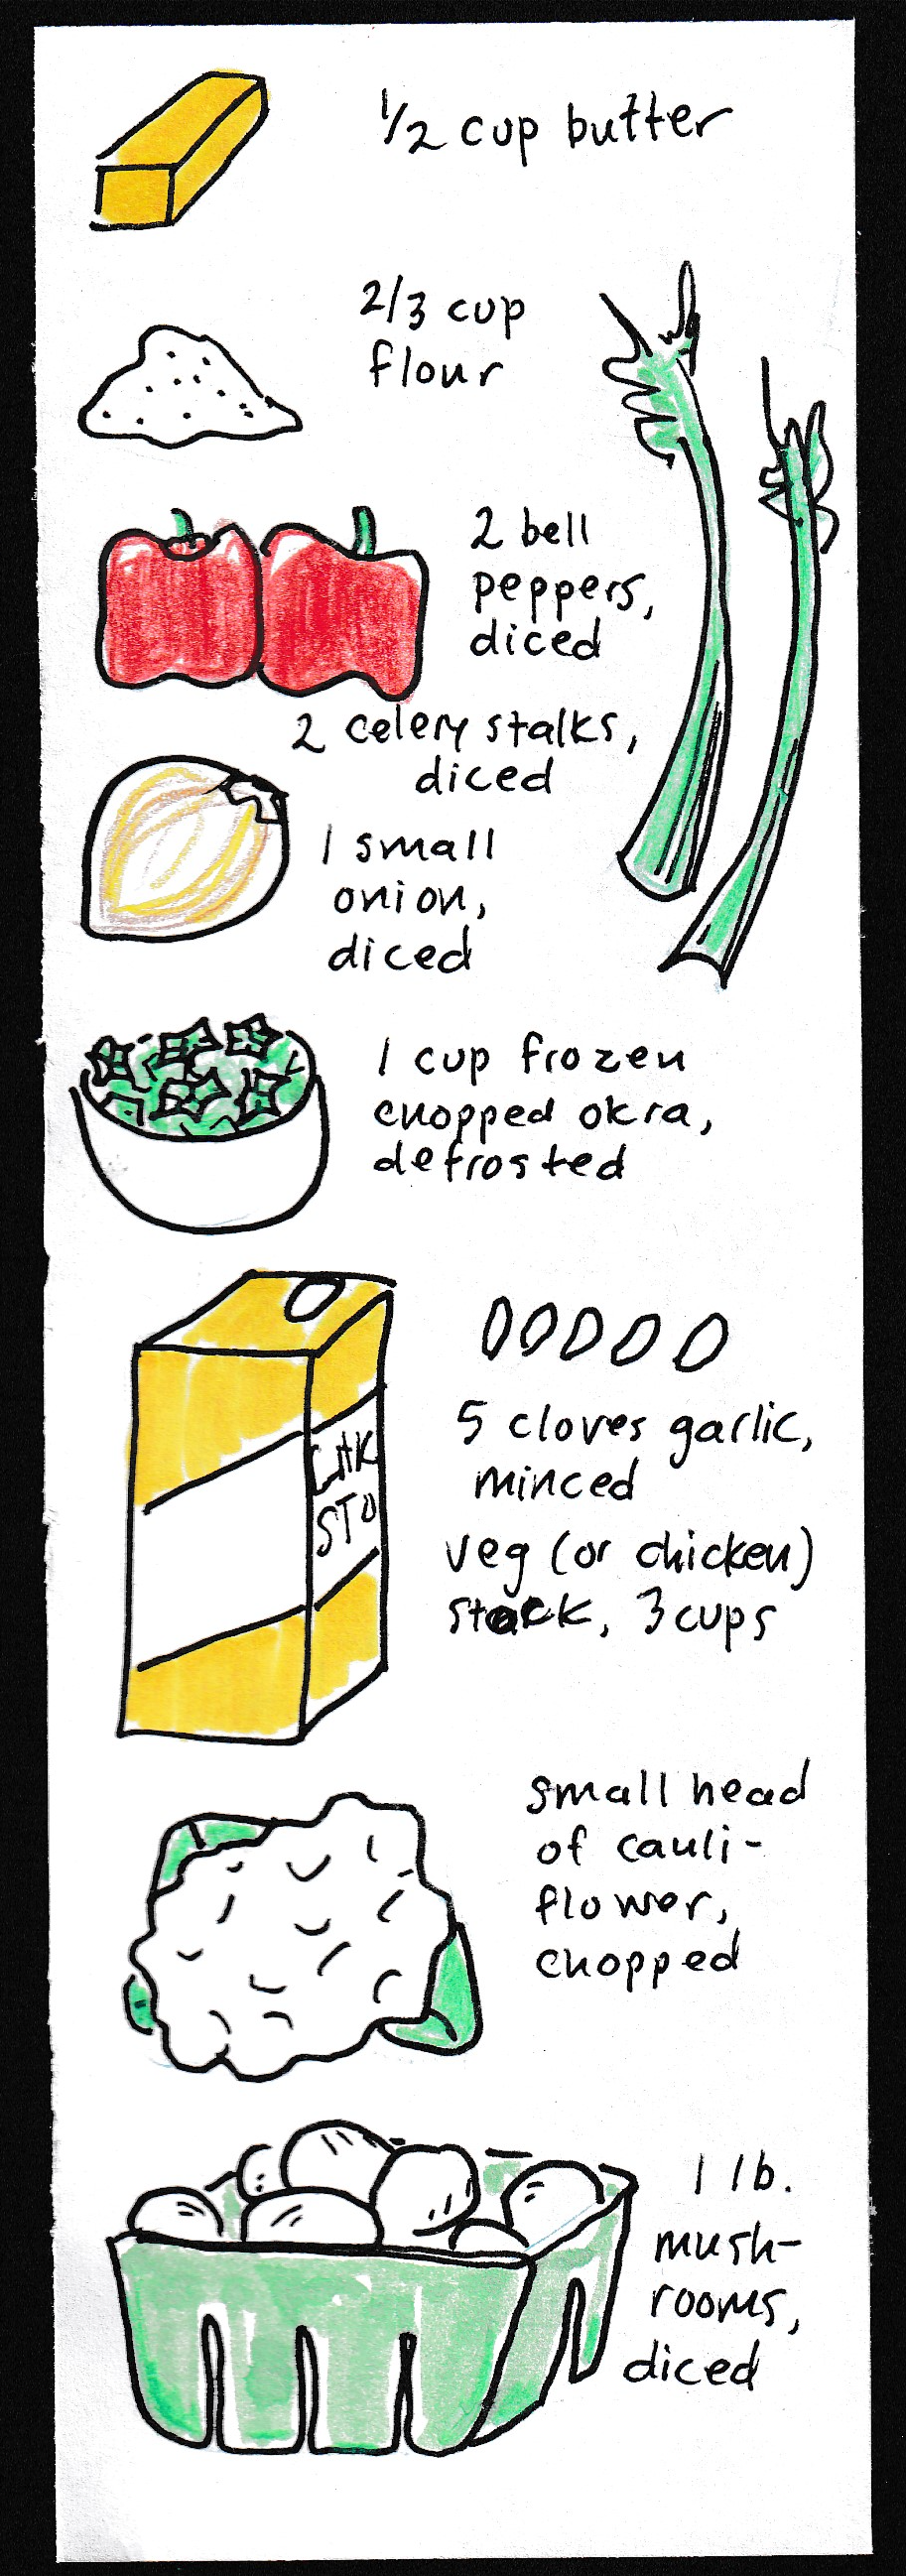 1/2 cup butter
2/3 cup
flour
2 bell
peppers,
diced
2 celery stalks,
diced
1 small
onion,
diced
1 cup frozen
chopped okra,
defrosted
CHK
STO
5 cloves garlic,
minced
veg (or chicken)
stock, 3 cups
small head
of cauli-
flower,
chopped
1 lb.
mush-
rooms,
diced